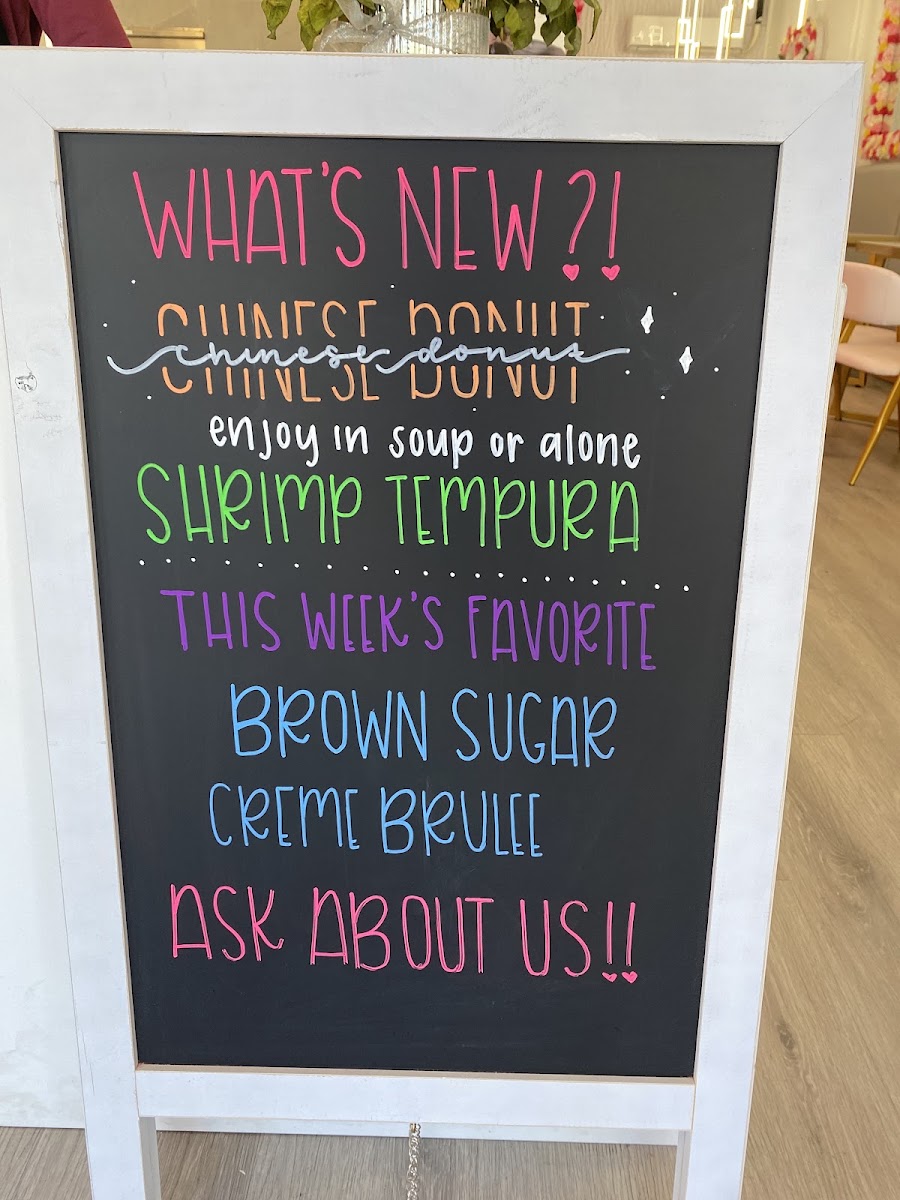 WHAT'S NEW?!
CHINESE DONUT
chinese donut
enjoy in soup or alone
SHRIMP TEMPURA
THIS WEEK'S FAVORITE
BROWN SUGAR
CREME BRULEE
ASK ABOUT US!!